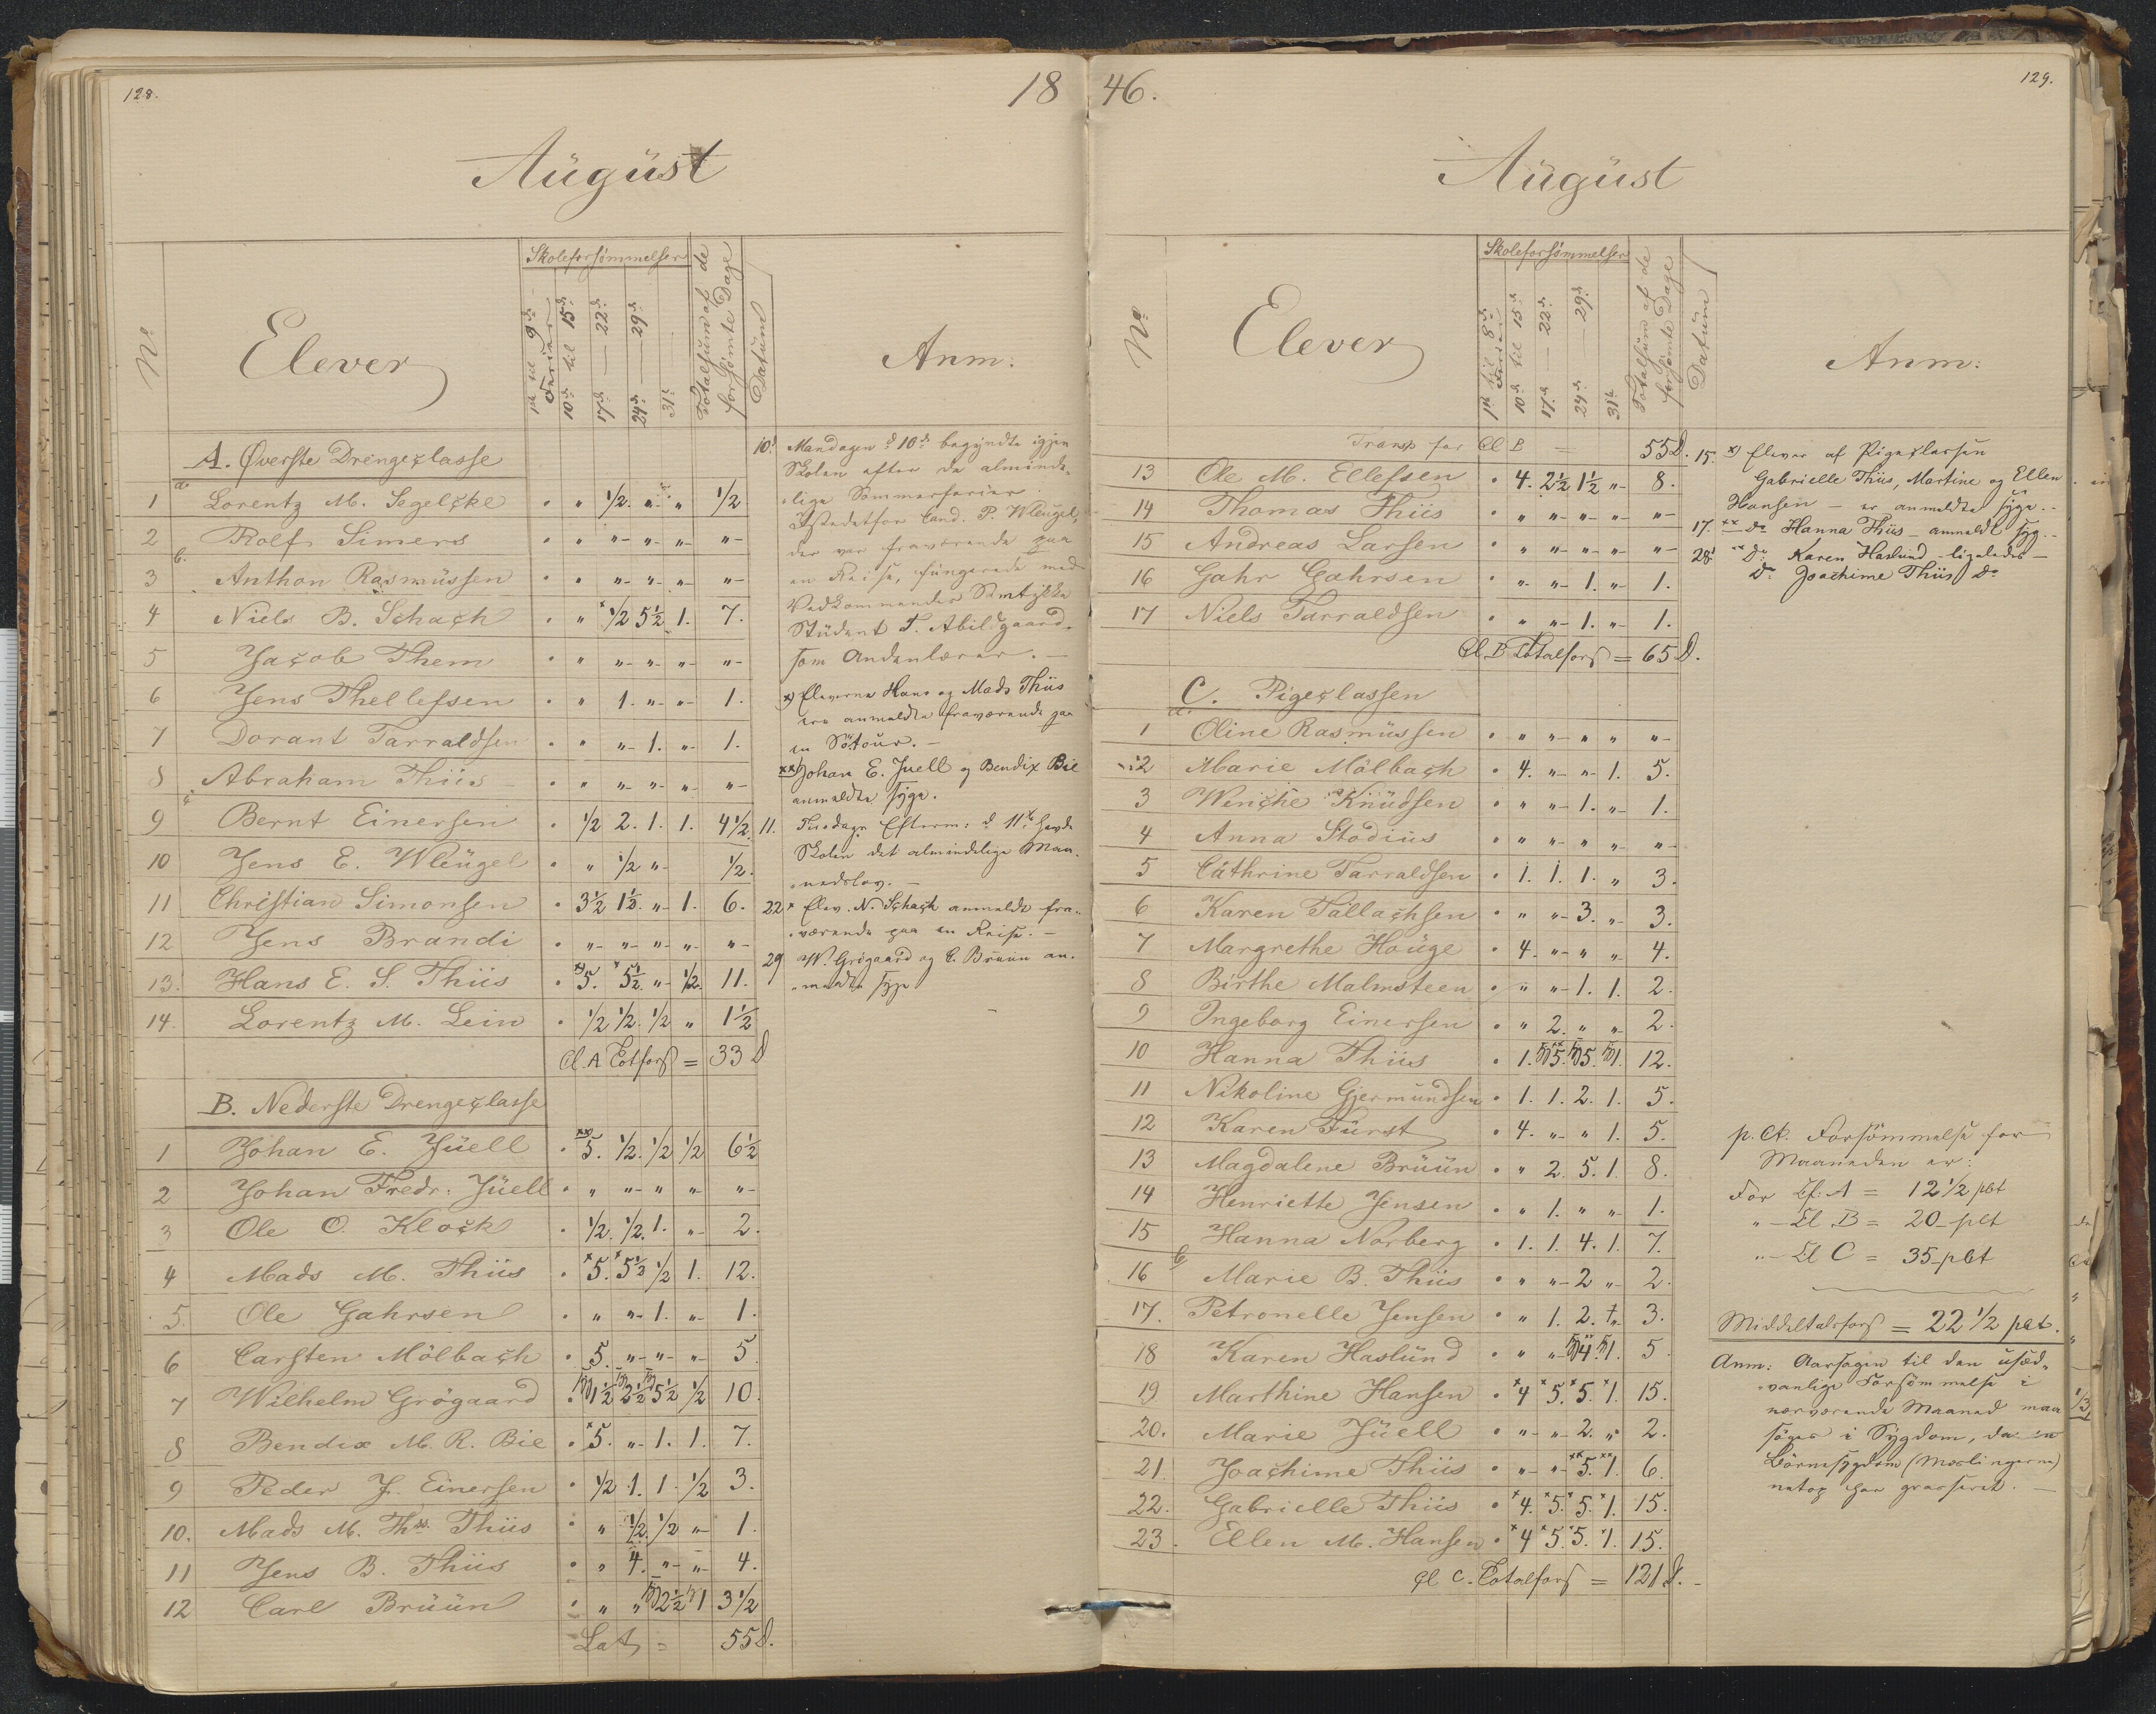 128.
18
August
No
Elever
Skoleforsømmelser
1ste til 9de
Ferier
10de til 15de
17de — 22de
24de — 29de
31te
Totalsum af de
forsømte Dage
Datum
Anm:
A. Øverste Drengeclasse
a.
1 Lorentz M. Segelcke . " 1/2. " " 1/2.
2 Rolf Simers . " " " " "
b.
3 Anthon Rasmüssen . " " " " "
4 Niels B. Schach . " x1/2 5 1/2 1. 7.
5 Jacob Them . " " " " "
6 Jens Thellefsen . " 1. " " 1.
7 Dorant Tarraldsen . " " 1. " 1.
8 Abraham Thiis . " " " " "
c.
9 Bernt Einersen . 1/2 2. 1. 1. 4 1/2.
10 Jens E. Wleügel . " 1/2 " 1/2.
11 Christian Simonsen . 3 1/2 1 1/2. " 1. 6.
12 Jens Brandi . " " " " "
13. Hans E. S. Thiis . x)5. x5 1/2. " 1/2. 11.
14. Lorentz M. Lein . 1/2 1/2. 1/2 " 1 1/2
Cl. A Totfors = 33 D
B. Nederste Drengeclasse
1 Johan E. Jüell . xx)5. 1/2. 1/2 1/2 6 1/2
2 Johan Fredr: Jüell . " " " " "
3 Ole O. Klock . 1/2. 1/2. 1. " 2.
4 Mads M. Thiis . x5. x5 1/2 1/2 1. 12.
5. Ole Gahrsen . " " 1. " 1.
6 Carsten Mölbach . 5. " " " 5
7 Wilhelm Grögaard . 1 1/2 2 1/2 5 1/2 1/2 10.
8 Bendix M. R. Bie . x5. " 1. 1. 7.
9 Peder J. Einersen . 1/2 1. 1. 1/2 3.
10. Mads M. Ths. Thiis . " 1/2. 1/2 " 1.
11 Jens B. Thiis . " 4. " " 4.
12 Carl Brüün . " " 2 1/2 1 3 1/2
Lat = 55 D.
10d Mandagen d 10de begyndte igjen
Skolen efter de alminde-
-lige Sommerferier.
Istedetfor Cand. P. Wleugel,
der var fraværende paa
en Reise, fungerede med
Vedkommendes Samtykke
Stüdent T. Abildgaard
som Andenlærer. —
x) Eleverne Hans og Mads Thiis
ere anmeldte fraværende paa
en Søtour. —
xx) Johan E. Juell og Bendix Bie
anmeldte syge.
11. Tirsdags Efterm: d 11te havde
Skolen det almindelige Maa-
-nedslov. —
22 x Elev. N. Schach anmeldt fra-
-værende paa en Reise. —
29 W. Grögaard og C. Brüün an-
-meldte syge
46.
129.
August
No
Elever
Skoleforsømmelser
1ste til 8de
Ferier
10de til 15de
17de — 22de
24de — 29de
31te
Totalsum af de
forsømte Dage
Datum
Anm:
Transp for Cl B = 55 D.
13 Ole M. Ellefsen . 4. 2 1/2 1 1/2 " 8.
14 Thomas Thiis . " " " " "
15 Andreas Larsen . " " " " "
16 Gahr Gahrsen . " " 1. " 1.
17 Niels Tarraldsen . " " 1. " 1.
Cl. B Totalfors = 65 D.
C. Pigeclassen
a.
1 Oline Rasmüssen . " " " " "
2 Marie Mölbach . 4. " " 1. 5.
3 Wenche Knüdsen . " " 1. " 1.
4 Anna Stodiüs . " " " " "
5 Cathrine Tarraldsen . 1. 1. 1. " 3.
6 Karen Tallachsen . " " 3. " 3.
7 Margrethe Houge . 4. " " " 4.
8 Birthe Malmsteen . " " 1. 1. 2.
9 Ingeborg Einersen . " 2. " " 2.
10 Hanna Thiis . 1. xx5. 5. 1. 12.
11 Nikoline Gjermundsen . 1. 1. 2. 1. 5.
12 Karen Fürst . 4. " " 1. 5.
13 Magdalene Brüün . " 2. 5. 1. 8.
14 Henriette Jensen . " 1. " " 1.
15 Hanna Norberg . 1. 1. 4. 1. 7.
b
16 Marie B. Thiis . " " 2 " 2.
17. Petronelle Jensen . " 1. 2. " 3.
18 Karen Haslünd . " " 4. 1. 5
19 Marthine Hansen . x4 x5. x5. x1. 15.
20. Marie Jüell . " " 2. " 2.
21. Joachime Thiis . " " xx5. xx1. 6.
22. Gabrielle Thiis . x4. x5. x5. x1. 15.
23. Ellen M. Hansen . x4 x5. x5. x1. 15.
Cl C. Totalfors = 121 D.
15. x) Elever af Pigeclassen
Gabrielle Thiis, Martine og Ellen
Hansen — er anmeldte syge. —
17. xx Do Hanna Thiis — anmeldt syg. —
28. Do Karen Haslund — ligeledes —
Do Joachime Thiis Do
p. Ct. Forsömmelse for
Maaneden er:
For Cl: A = 12 1/2 pCt
" — Cl. B = 20 — pCt
" — Cl C = 35 — pCt
Middeltalsfors = 22 1/2 pCt.
Anm: Aarsagen til den usæd-
-vanlige Forsömmelse i
nærværende Maaned maa
söges i Sygdom, da en
Börnesygdom (Mæslingerne)
netop har grasseret. —